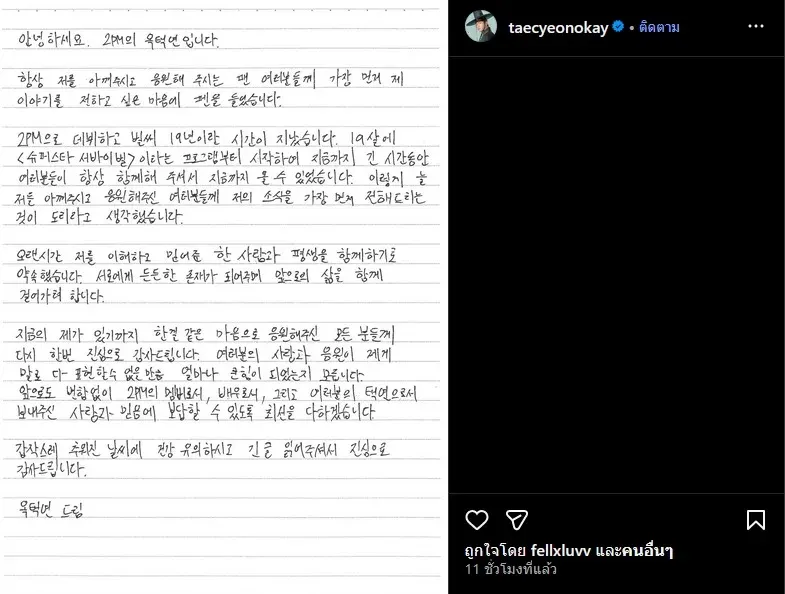 안녕하세요. 2PM의 옥택연입니다.
항상 저를 아껴주시고 응원해 주시는 팬 여러분들께 가장 먼저 제
이야기를 전하고 싶은 마음에 펜을 들었습니다.
2PM으로 데뷔하고 벌써 19년이란 시간이 지났습니다. 19살에
<슈퍼스타 서바이벌>이라는 프로그램부터 시작하여 지금까지 긴 시간동안
여러분들이 항상 함께해 주셔서 지금까지 올 수 있었습니다. 이렇게 늘
저를 아껴주시고 응원해주신 여러분들께 저의 소식을 가장 먼저 전해드리는
것이 도리라고 생각했습니다.
오랜시간 저를 이해하고 믿어준 한 사람과 평생을 함께하기로
약속했습니다. 서로에게 든든한 존재가 되어주며 앞으로의 삶을 함께
걸어가려 합니다.
지금의 제가 있기까지 한결 같은 마음으로 응원해주신 모든 분들께
다시 한번 진심으로 감사드립니다. 여러분의 사랑과 응원이 제게
말로 다 표현할수 없을만큼 얼마나 큰힘이 되었는지 모릅니다.
앞으로도 변함없이 2PM의 멤버로서, 배우로서, 그리고 여러분의 택연으로서
보내주신 사랑과 믿음에 보답할 수 있도록 최선을 다하겠습니다.
갑작스레 추워진 날씨에 건강 유의하시고 긴 글 읽어주셔서 진심으로
감사드립니다.
옥택연 드림
taecyeonokay • ติดตาม
ถูกใจโดย fellxluvv และคนอื่นๆ
11 ชั่วโมงที่แล้ว